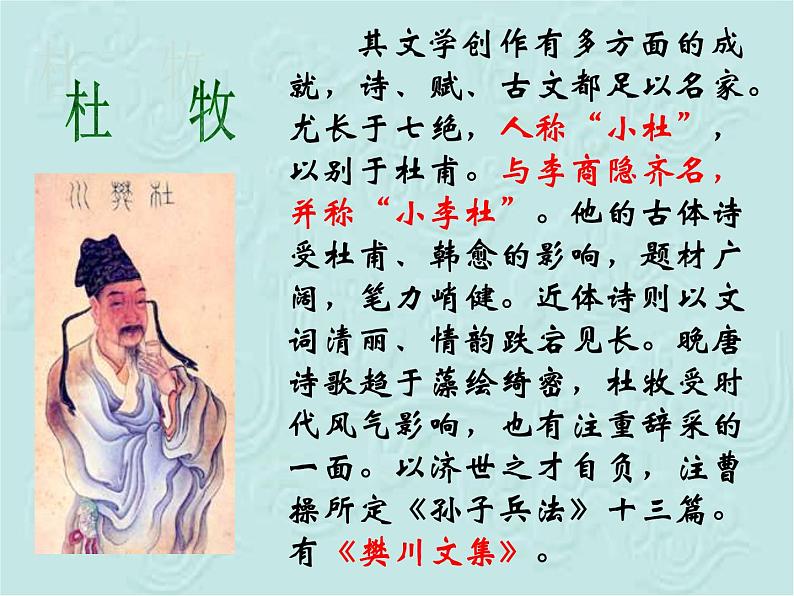 杜 牧
川樊杜
其文学创作有多方面的成
就，诗、赋、古文都足以名家。
尤长于七绝，人称“小杜”，
以别于杜甫。与李商隐齐名，
并称“小李杜”。他的古体诗
受杜甫、韩愈的影响，题材广
阔，笔力峭健。近体诗则以文
词清丽、情韵跌宕见长。晚唐
诗歌趋于藻绘绮密，杜牧受时
代风气影响，也有注重辞采的
一面。以济世之才自负，注曹
操所定《孙子兵法》十三篇。
有《樊川文集》。